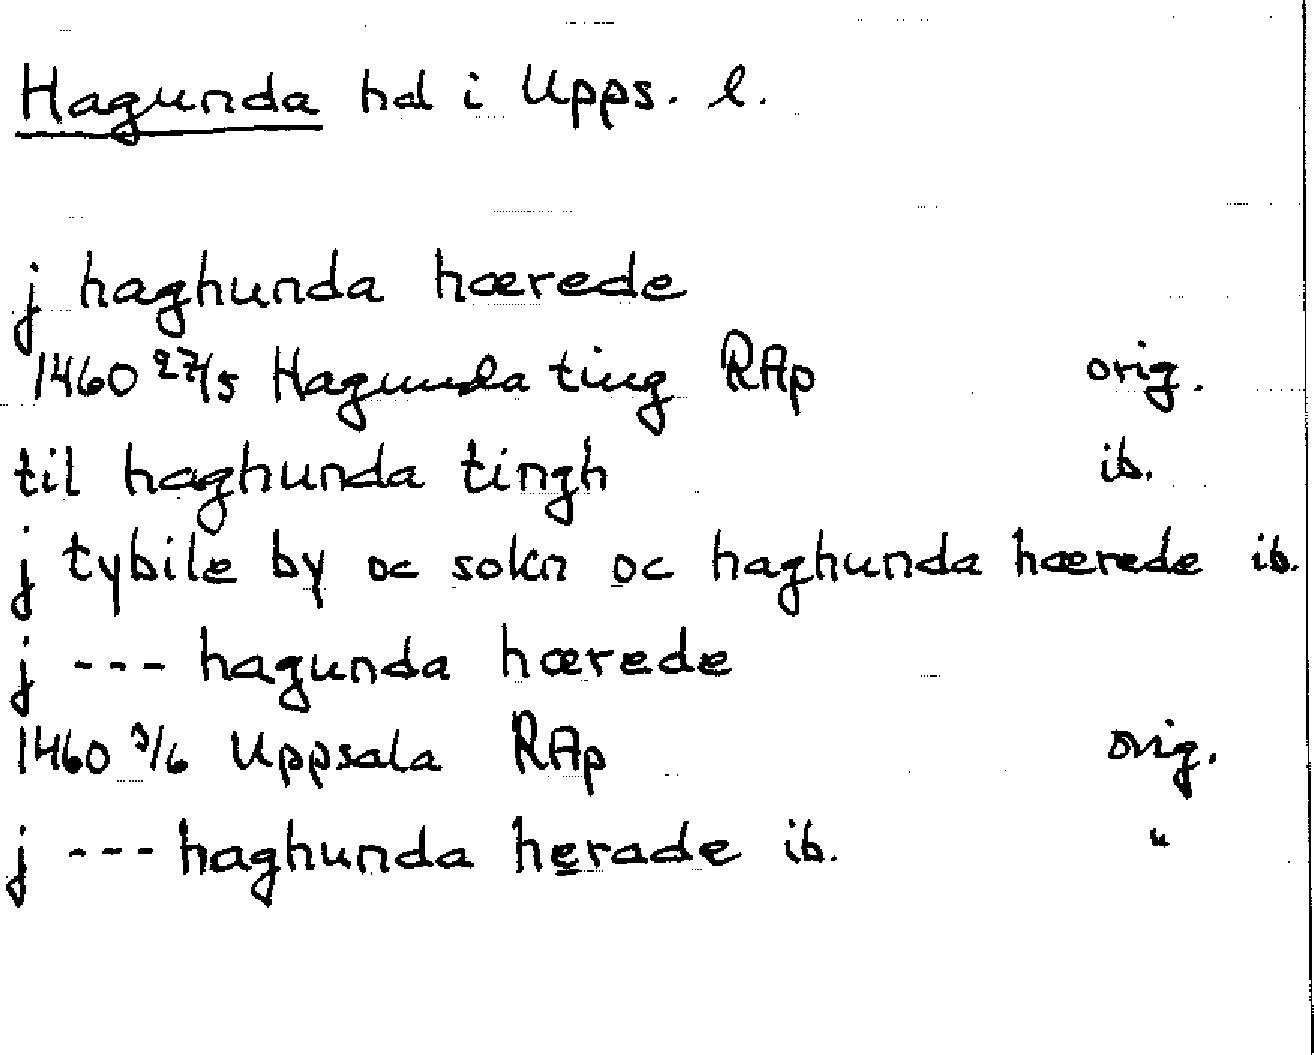 Hagunda hd i Upps. l.
j haghunda hærede
1460 27/5 Hagunda ting RAp orig.
til haghunda tingh ib.
j tybile by oc sokn oc haghunda hærede ib.
j --- hagunda hærede
1460 3/6 Uppsala RAp orig.
j --- haghunda herade ib. "